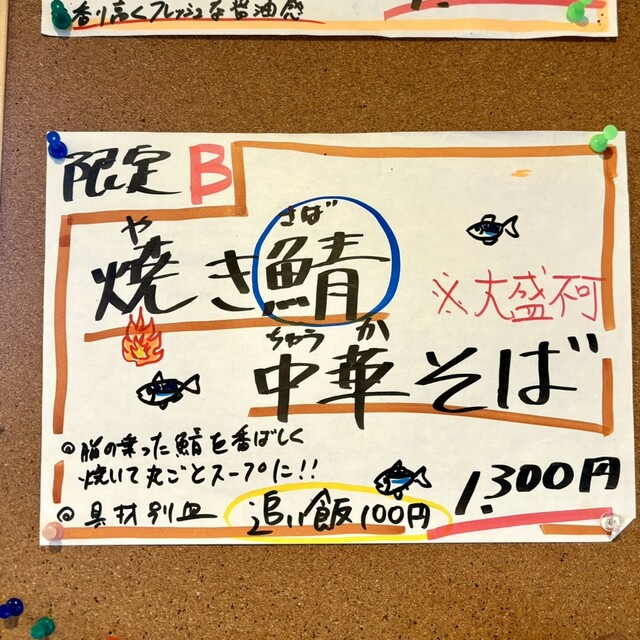 香り高くフレッシュな醤油感
限定B
や さば
焼き鯖
※大盛不可
ちゅう か
中華そば
◎脂の乗った鯖を香ばしく
焼いて丸ごとスープに!!
1,300円
◎具材別皿
追い飯100円